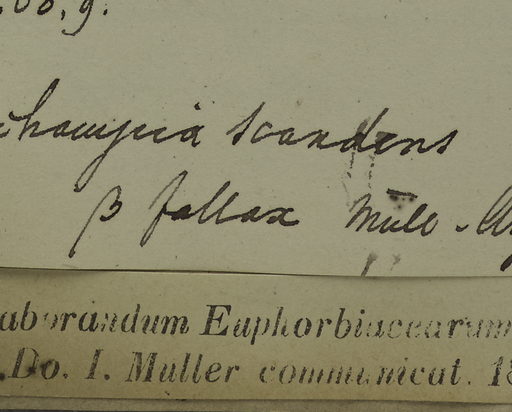 .66, 9.
chomycia scandens
β fallax Müll - Ar
aborandum Euphorbiacearum
.Do. I. Muller communicat. 18